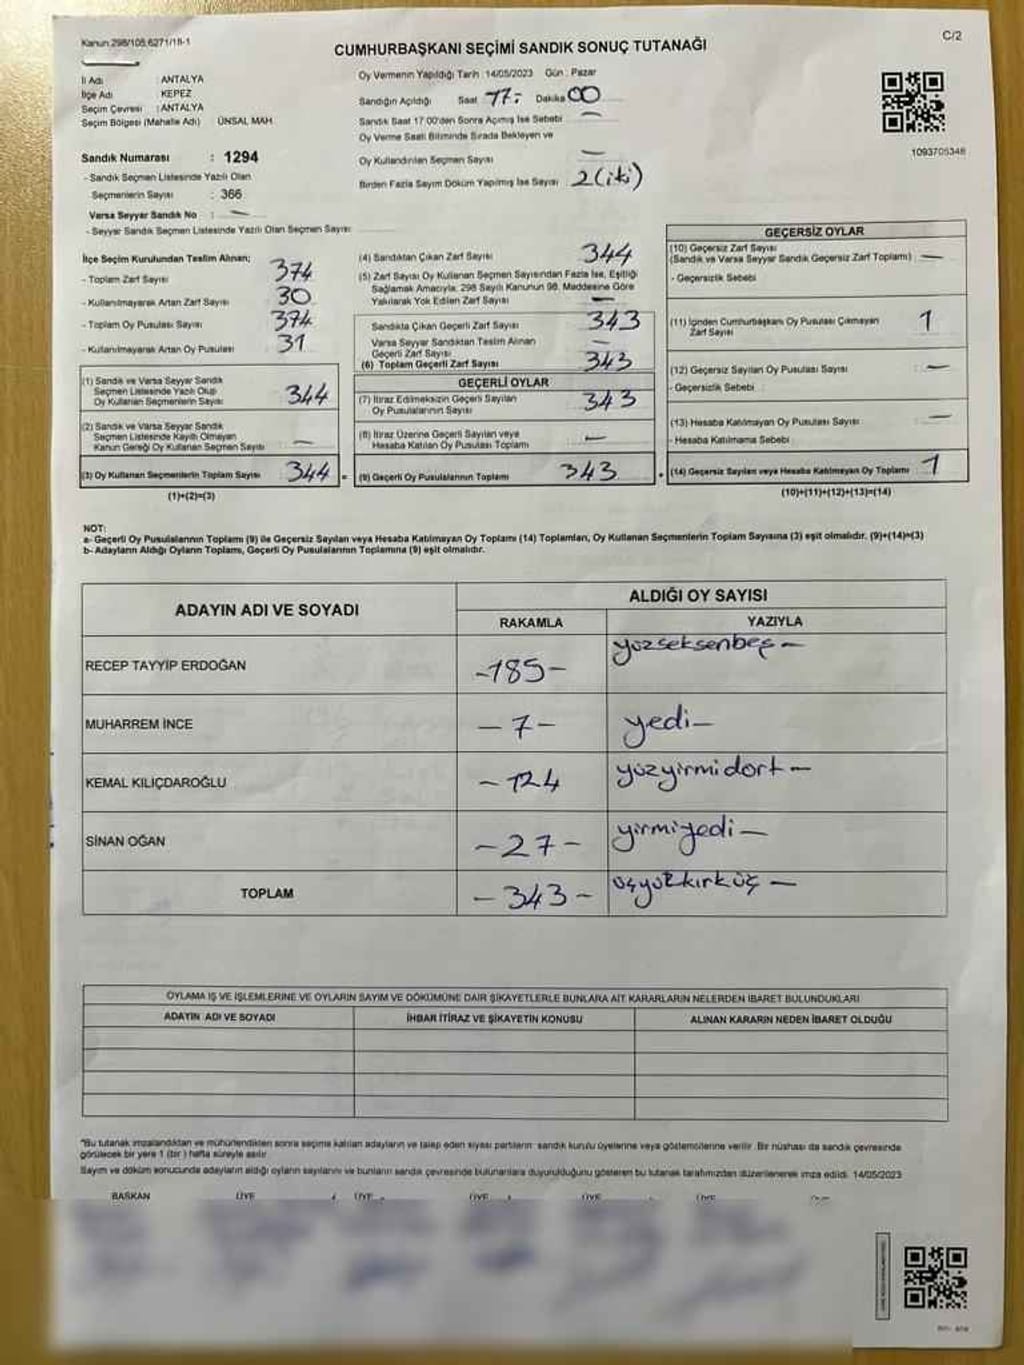 Kanun 298/105,6271/18-1
C/2
CUMHURBAŞKANI SEÇİMİ SANDIK SONUÇ TUTANAĞI
İl Adı : ANTALYA
İlçe Adı : KEPEZ
Seçim Çevresi : ANTALYA
Seçim Bölgesi (Mahalle Adı) ÜNSAL MAH.
Sandık Numarası : 1294
- Sandık Seçmen Listesinde Yazılı Olan
Seçmenlerin Sayısı : 366
Varsa Seyyar Sandık No : —
- Seyyar Sandık Seçmen Listesinde Yazılı Olan Seçmen Sayısı
Oy Vermenin Yapıldığı Tarih : 14/05/2023 Gün : Pazar
Sandığın Açıldığı Saat 17:- Dakika 00
Sandık Saat 17.00'den Sonra Açımış İse Sebebi —
Oy Verme Saati Bitiminde Sırada Bekleyen ve
Oy Kullandırılan Seçmen Sayısı —
Birden Fazla Sayım Döküm Yapılmış İse Sayısı 2(iki)
1093705348
İlçe Seçim Kurulundan Teslim Alınan;
- Toplam Zarf Sayısı 374
- Kullanılmayarak Artan Zarf Sayısı 30
- Toplam Oy Pusulası Sayısı 374
- Kullanılmayarak Artan Oy Pusulası 31
(1) Sandık ve Varsa Seyyar Sandık
Seçmen Listesinde Yazılı Olup
Oy Kullanan Seçmenlerin Sayısı 344
(2) Sandık ve Varsa Seyyar Sandık
Seçmen Listesinde Kayıtlı Olmayan
Kanun Gereği Oy Kullanan Seçmen Sayısı —
(3) Oy Kullanan Seçmenlerin Toplam Sayısı 344 =
(1)+(2)=(3)
(4) Sandıktan Çıkan Zarf Sayısı 344
(5) Zarf Sayısı Oy Kullanan Seçmen Sayısından Fazla İse, Eşitliği
Sağlamak Amacıyla, 298 Sayılı Kanunun 98. Maddesine Göre
Yakılarak Yok Edilen Zarf Sayısı —
Sandıkta Çıkan Geçerli Zarf Sayısı 343
Varsa Seyyar Sandıktan Teslim Alınan
Geçerli Zarf Sayısı —
(6) Toplam Geçerli Zarf Sayısı 343
GEÇERLİ OYLAR
(7) İtiraz Edilmeksizin Geçerli Sayılan
Oy Pusulalarının Sayısı 343
(8) İtiraz Üzerine Geçerli Sayılan veya
Hesaba Katılan Oy Pusulası Toplamı —
(9) Geçerli Oy Pusulalarının Toplamı 343 +
GEÇERSİZ OYLAR
(10) Geçersiz Zarf Sayısı
(Sandık ve Varsa Seyyar Sandık Geçersiz Zarf Toplamı) —
- Geçersizlik Sebebi
(11) İçinden Cumhurbaşkanı Oy Pusulası Çıkmayan
Zarf Sayısı 1
(12) Geçersiz Sayılan Oy Pusulası Sayısı —
- Geçersizlik Sebebi
(13) Hesaba Katılmayan Oy Pusulası Sayısı —
- Hesaba Katılmama Sebebi
(14) Geçersiz Sayılan veya Hesaba Katılmayan Oy Toplamı 1
(10)+(11)+(12)+(13)=(14)
NOT:
a- Geçerli Oy Pusulalarının Toplamı (9) ile Geçersiz Sayılan veya Hesaba Katılmayan Oy Toplamı (14) Toplamları, Oy Kullanan Seçmenlerin Toplam Sayısına (3) eşit olmalıdır. (9)+(14)=(3)
b- Adayların Aldığı Oyların Toplamı, Geçerli Oy Pusulalarının Toplamına (9) eşit olmalıdır.
ADAYIN ADI VE SOYADI
ALDIĞI OY SAYISI
RAKAMLA YAZIYLA
RECEP TAYYİP ERDOĞAN -185- yüzseksenbeş -
MUHARREM İNCE -7- yedi-
KEMAL KILIÇDAROĞLU -124 yüzyirmidört -
SİNAN OĞAN -27- yirmiyedi -
TOPLAM -343- üçyüzkırküç -
OYLAMA İŞ VE İŞLEMLERİNE VE OYLARIN SAYIM VE DÖKÜMÜNE DAİR ŞİKAYETLERLE BUNLARA AİT KARARLARIN NELERDEN İBARET BULUNDUKLARI
ADAYIN ADI VE SOYADI İHBAR İTİRAZ VE ŞİKAYETİN KONUSU ALINAN KARARIN NEDEN İBARET OLDUĞU
"Bu tutanak imzalandıktan ve mühürlendikten sonra seçime katılan adayların ve talep eden siyasi partilerin sandık kurulu üyelerine veya göstemcilerine verilir. Bir nüshası da sandık çevresinde
görülecek bir yere 1 (bir) hafta süreyle asılır
Sayım ve döküm sonucunda adayların aldığı oyların sayılarını ve bunların sandık çevresinde bulunanlara duyurulduğunu gösteren bu tutanak tarafımızdan düzenlenerek imza edildi. 14/05/2023
BAŞKAN ÜYE ÜYE ÜYE ÜYE ÜYE